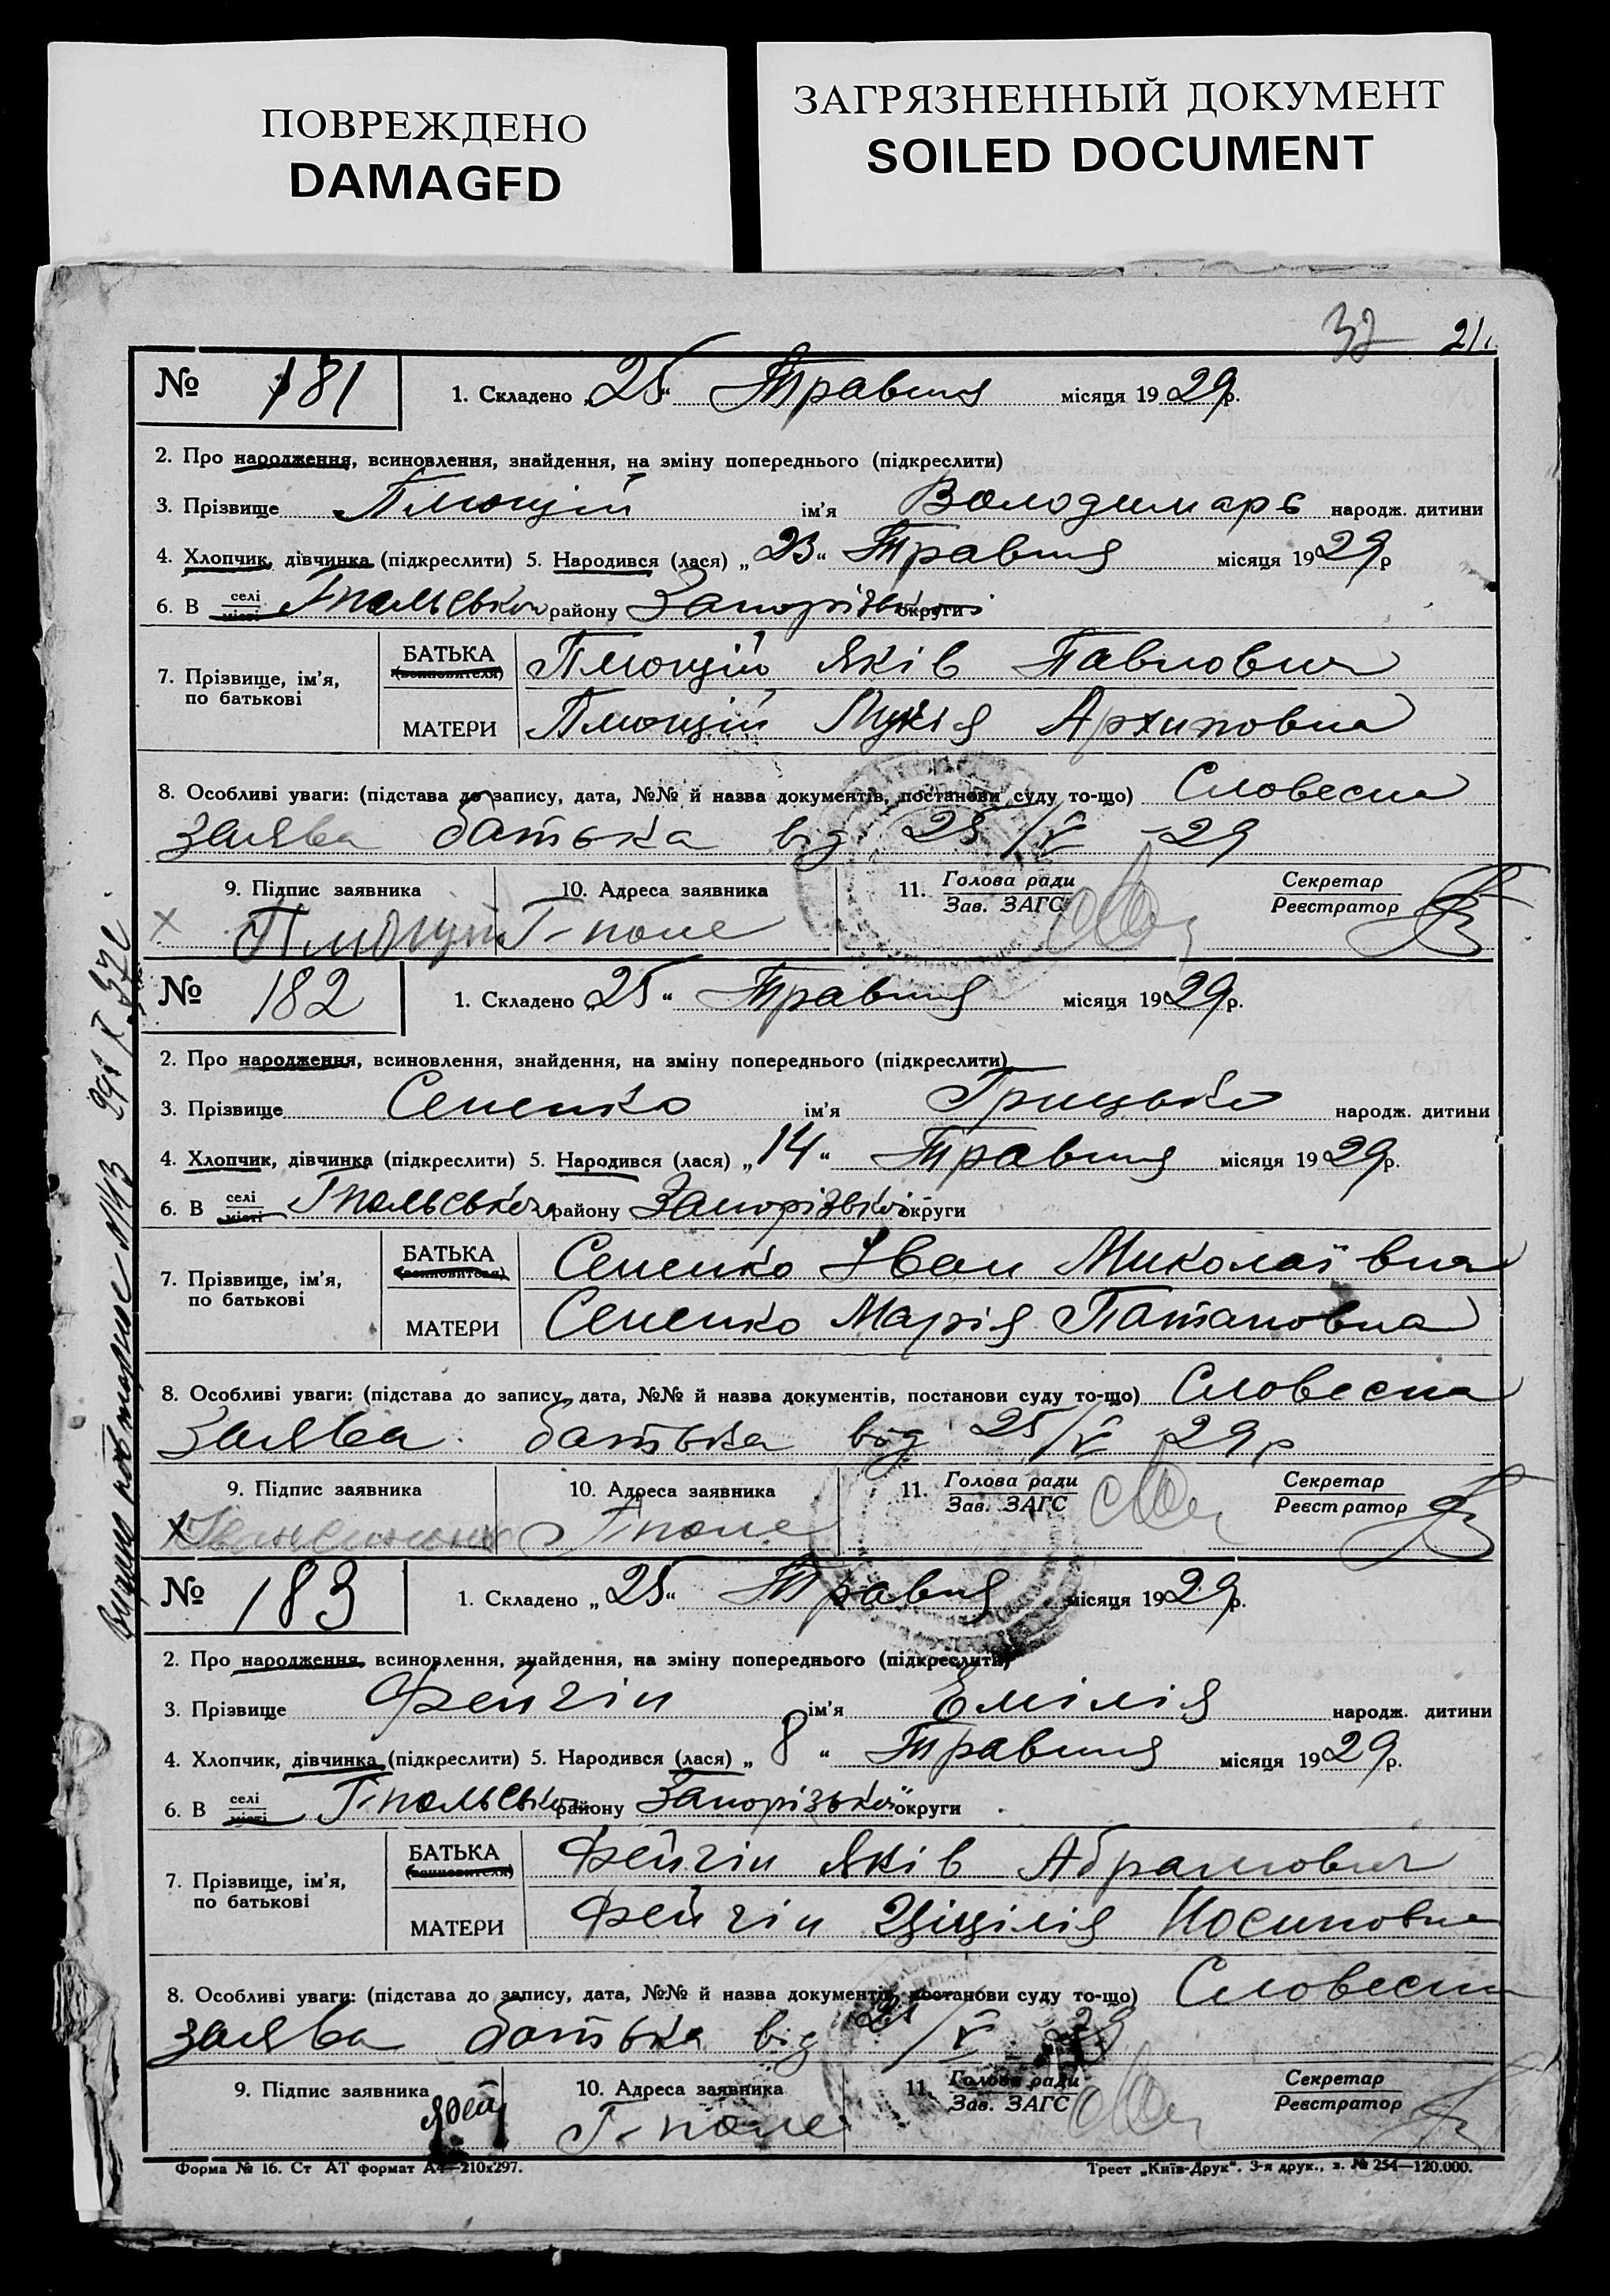 ПОВРЕЖДЕНО
DAMAGED
ЗАГРЯЗНЕННЫЙ ДОКУМЕНТ
SOILED DOCUMENT
32 21
№ 181 1. Складено „25“ Травня місяця 1929р.
2. Про народження, всиновлення, знайдення, на зміну попереднього (підкреслити)
3. Прізвище Плющій ім'я Володимарь народж. дитини
4. Хлопчик, дівчинка (підкреслити) 5. Народився (лася) „23“ Травня місяця 1929р
6. В селі місті Гпольськом району Запорізької округи
7. Прізвище, ім'я, по батькові БАТЬКА (всиновителя) Плющій Яків Павлович
МАТЕРИ Плющій Лукія Архиповна
8. Особливі уваги: (підстава до запису, дата, №№ й назва документів, постанови суду то-що) Словесна
заява батька від 25/V -29
9. Підпис заявника 10. Адреса заявника 11. Голова ради Зав. ЗАГС Секретар Реєстратор
х Плющій Г-поле
№ 182 1. Складено „25“ Травня місяця 1929р.
2. Про народження, всиновлення, знайдення, на зміну попереднього (підкреслити)
3. Прізвище Сененко ім'я Грицько народж. дитини
4. Хлопчик, дівчинка (підкреслити) 5. Народився (лася) „14“ Травня місяця 1929р.
6. В селі місті Гпольськом району Запорізької округи
7. Прізвище, ім'я, по батькові БАТЬКА (всиновителя) Сененко Іван Миколаївич
МАТЕРИ Сененко Марія Патаповна
8. Особливі уваги: (підстава до запису, дата, №№ й назва документів, постанови суду то-що) Словесна
Заява батька від 25/V 29р
9. Підпис заявника 10. Адреса заявника 11. Голова ради Зав. ЗАГС Секретар Реєстратор
х Гполе
№ 183 1. Складено „25“ Травня місяця 1929р.
2. Про народження, всиновлення, знайдення, на зміну попереднього (підкреслити)
3. Прізвище Фейгін ім'я Емілія народж. дитини
4. Хлопчик, дівчинка (підкреслити) 5. Народився (лася) „8“ Травня місяця 1929р.
6. В селі місті Г-польськом району Запорізької округи
7. Прізвище, ім'я, по батькові БАТЬКА (всиновителя) Фейгін Яків Абрамович
МАТЕРИ Фейгін Ціцілія Иосиповна
8. Особливі уваги: (підстава до запису, дата, №№ й назва документів, постанови суду то-що) Словесна
заява батька від 25/V
9. Підпис заявника 10. Адреса заявника 11. Голова ради Зав. ЗАГС Секретар Реєстратор
Г-поле
Форма № 16. Ст АТ формат А4—210х297. Трест „Київ-Друк“. 3-я друк., з. № 254—120.000.